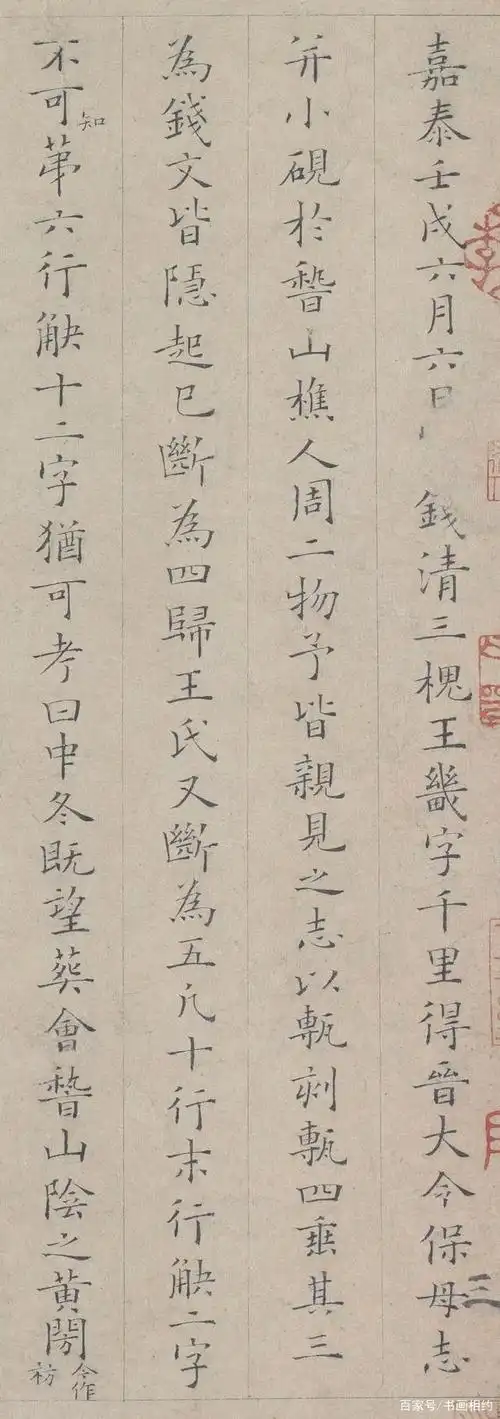 嘉泰壬戌六月六日錢清三槐王畿字千里得晉大令保母志
并小硯於稽山樵人周二物予皆親見之志以甎刻甎四垂其三
為錢文皆隱起已斷為四歸王氏又斷為五凡十行末行觖二字
不可知第六行觖十二字猶可考曰中冬既望葬會稽山陰之黃閍今作祊
三
百家号/书画相约